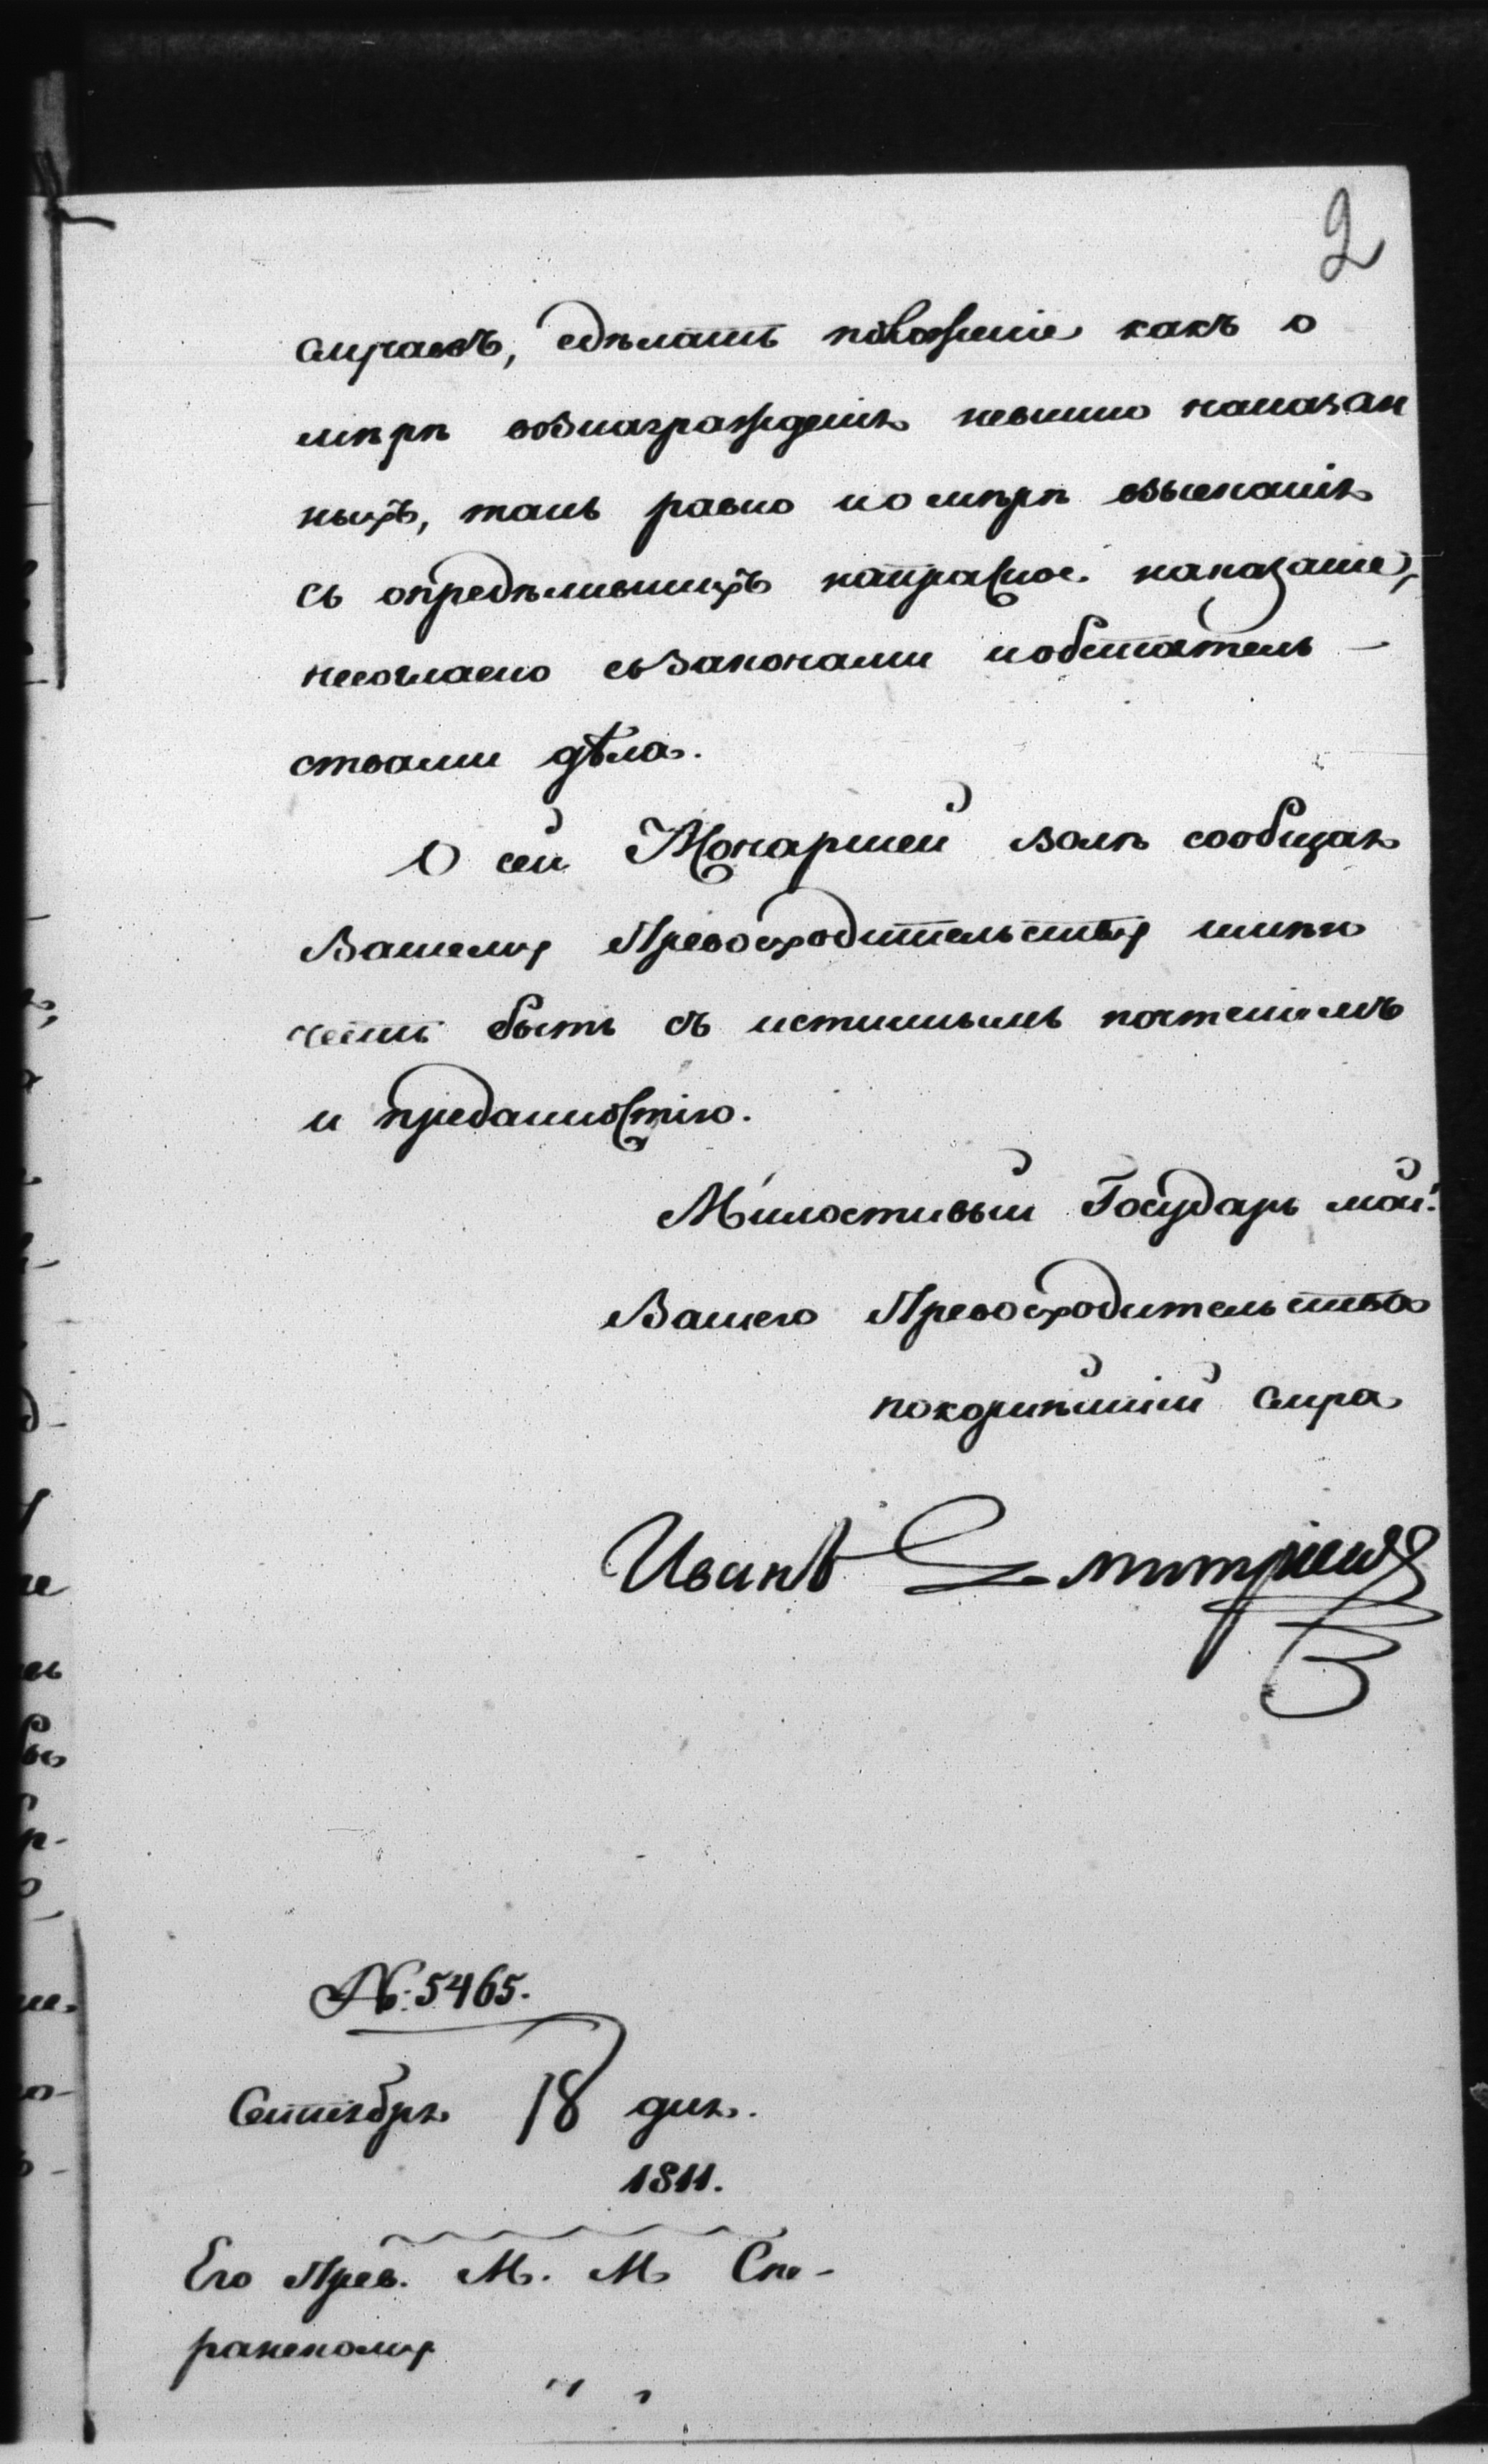 2
случаевъ, сдѣлать положеніе какъ о
мѣрѣ вознагражденія невинно наказан
ныхъ, такъ равно и о мѣрѣ взысканія
съ опредѣлившихъ напрасное наказаніе,
несогласно съ законами и обстоятель-
ствами дѣла.
О сей Монаршей волѣ сообщая
Вашему Превосходительству имѣю
честь быть съ истиннымъ почтеніемъ
и преданностію.
Милостивый Государь мой!
Вашего Превосходительства
покорнѣйшій слуга
Иванъ Дмитріевъ
№: 5465.
Сентября 18 дня.
1811.
Его Прев. М. М. Спе-
ранскому